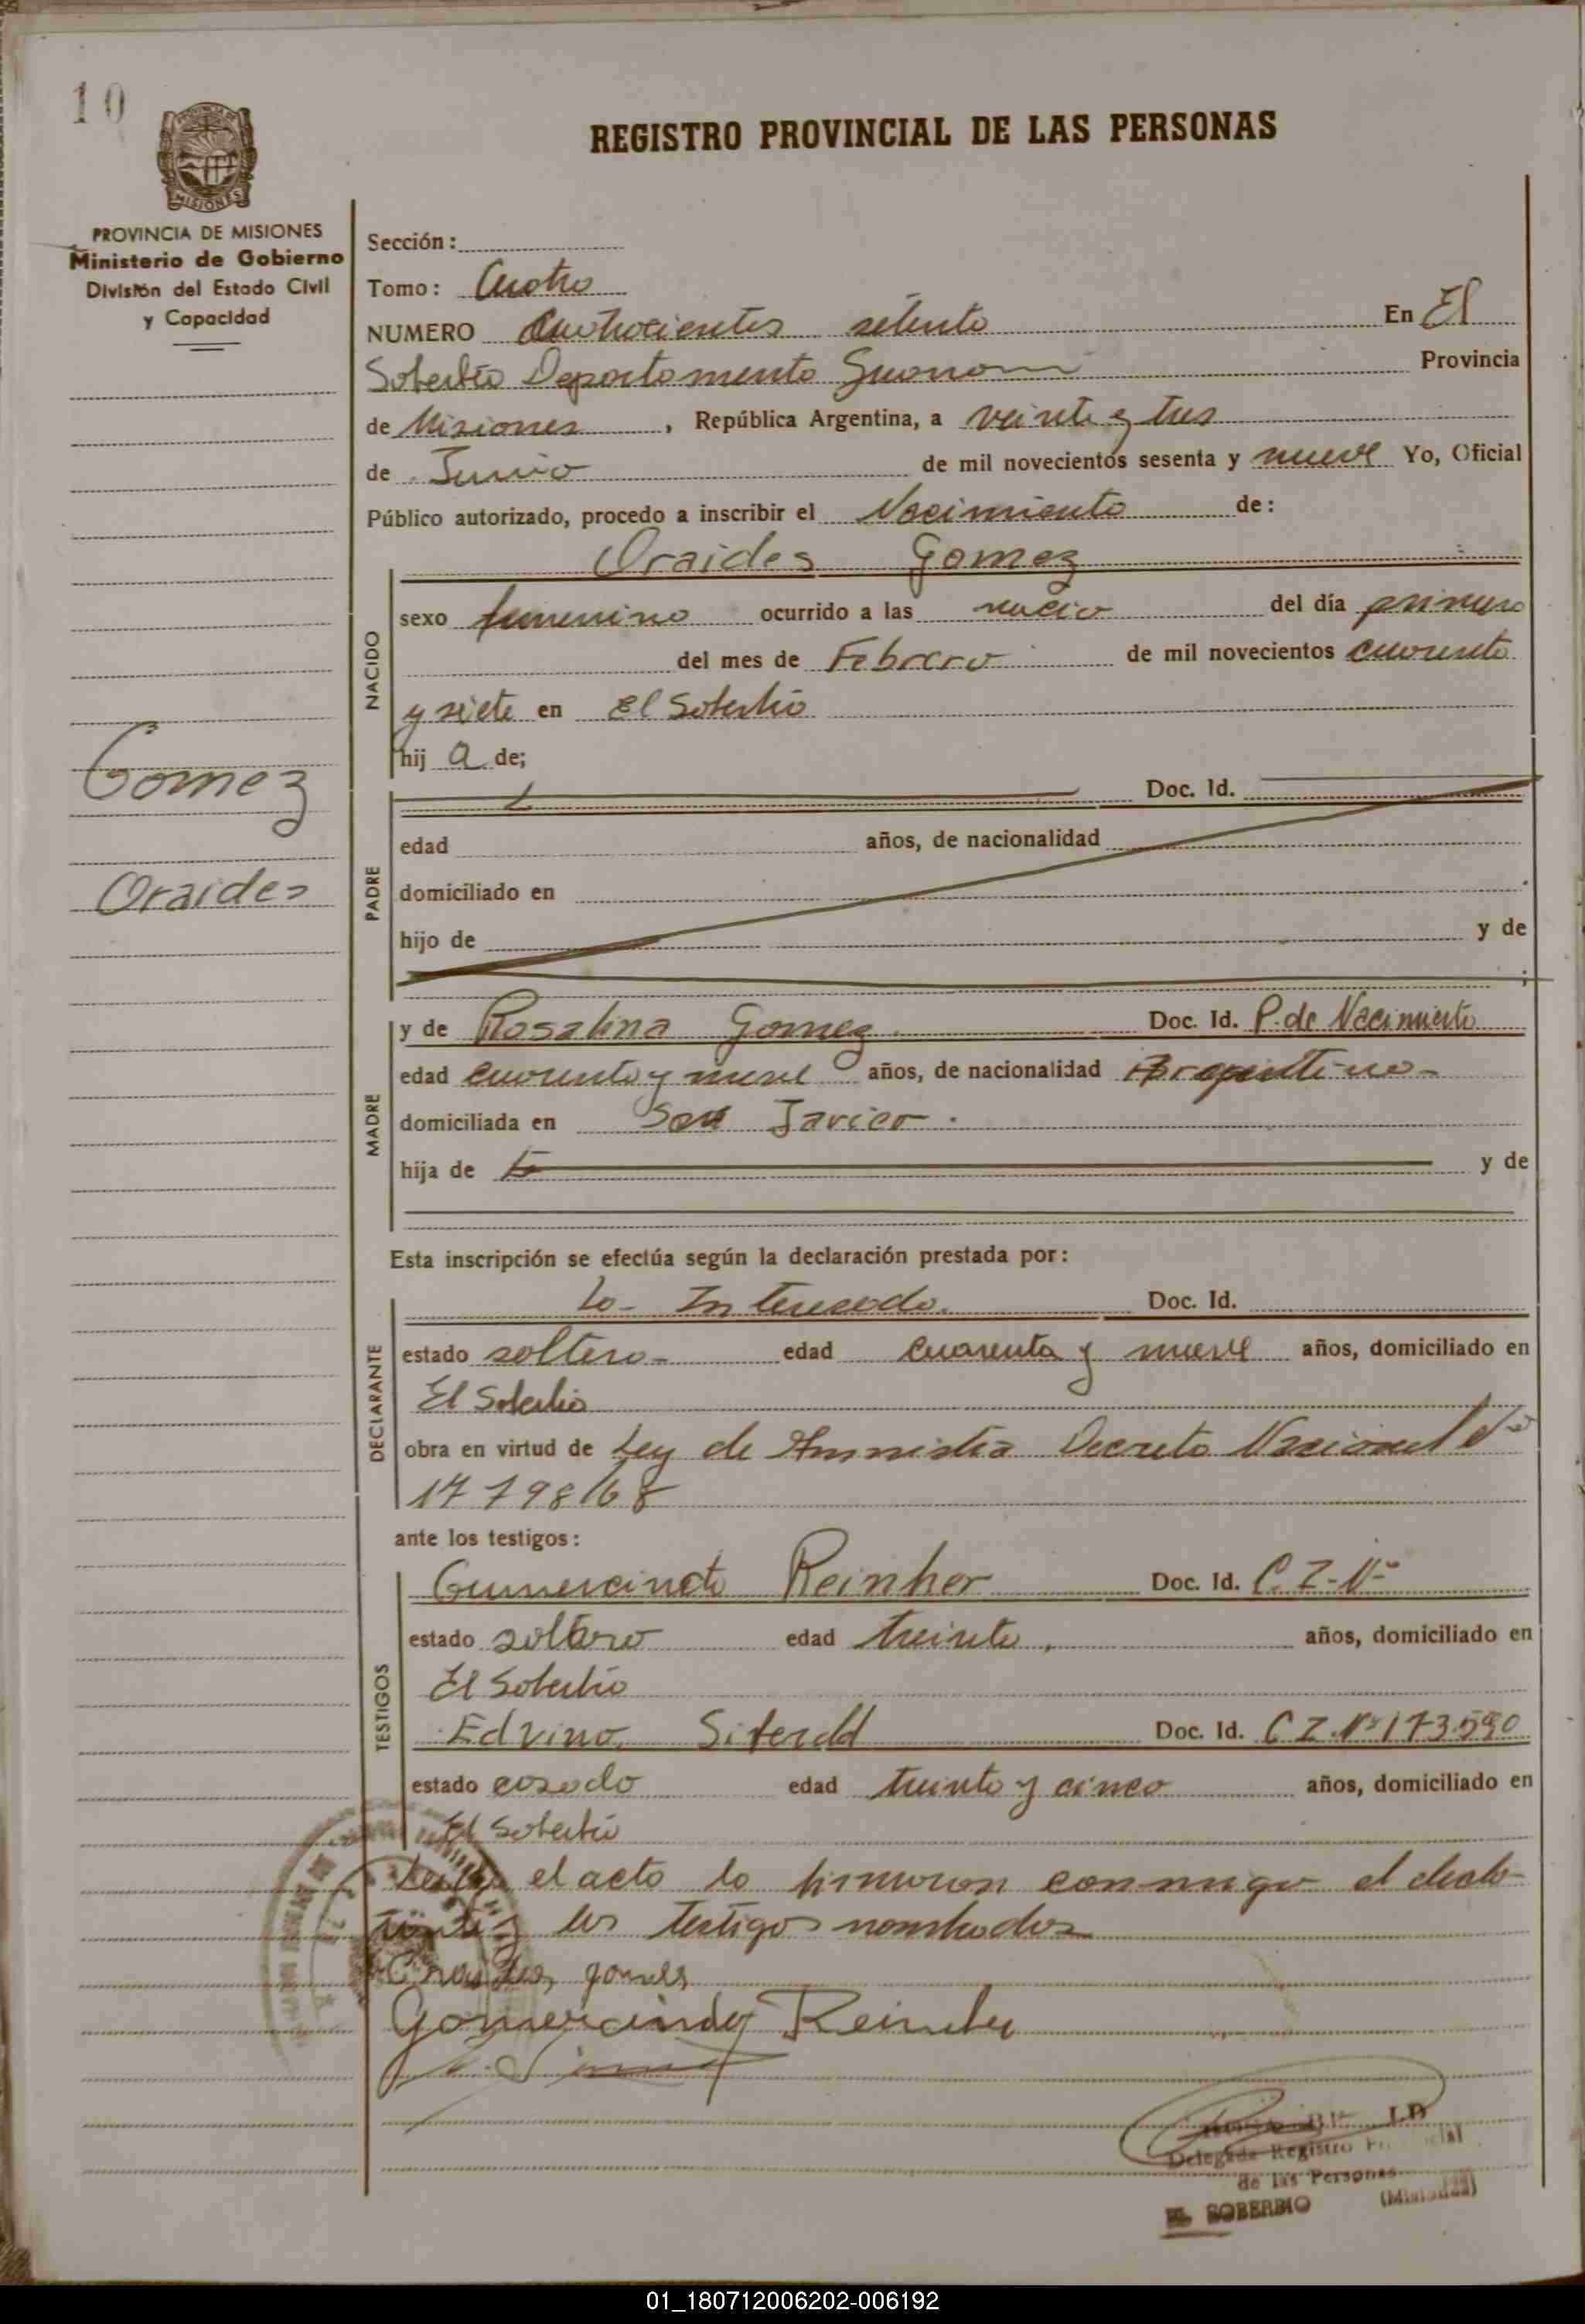 10
REGISTRO PROVINCIAL DE LAS PERSONAS
MISIONES
PROVINCIA DE MISIONES
Ministerio de Gobierno
División del Estado Civil
y Capacidad
Gomez
Oraides
Sección:
Tomo: Cuatro
NUMERO Cuatrocientos setenta En El
Soberbio Departamento Guarani Provincia
de Misiones, República Argentina, a veinte y tres
de Junio de mil novecientos sesenta y nueve Yo, Oficial
Público autorizado, procedo a inscribir el Nacimiento de:
Oraides Gomez
NACIDO
sexo femenino ocurrido a las del día primero
del mes de Febrero de mil novecientos cuarenta
y siete en El Soberbio
hij a de;
PADRE
Doc. Id.
edad años, de nacionalidad
domiciliado en
hijo de y de
MADRE
y de Rosalina Gomez Doc. Id. P. de Nacimiento
edad cuarenta y nueve años, de nacionalidad Argentina
domiciliada en San Javier.
hija de y de
Esta inscripción se efectúa según la declaración prestada por:
DECLARANTE
La Interesada. Doc. Id.
estado soltera edad cuarenta y nueve años, domiciliado en
El Soberbio
obra en virtud de Ley de Amnistia Decreto Nacional Nº
17798/68
ante los testigos:
TESTIGOS
Gumercindo Reinher Doc. Id. C.I. Nº
estado soltero edad treinta, años, domiciliado en
El Soberbio
Edvino Doc. Id. C I. Nº 173.590
estado casado edad treinta y cinco años, domiciliado en
El Soberbio
el acta la firmaron conmigo el decla-
rante y los testigos nombrados
gomes
Gomercindo Reinher
Delegada Registro Provincial
de las Personas
EL SOBERBIO (Misiones)
01_180712006202-006192